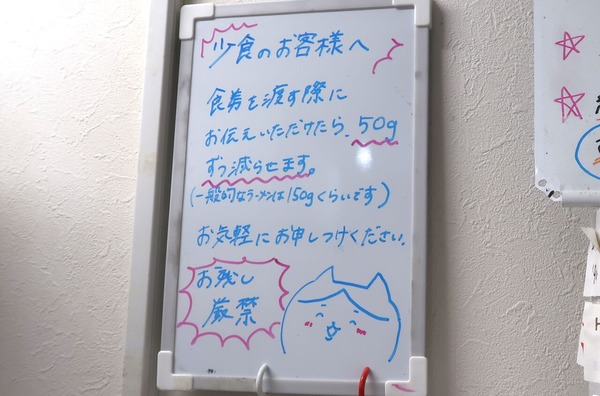 少食のお客様へ
食券を渡す際に
お伝えいただけたら、50g
ずつ減らせます。
(一般的なラーメンは150gくらいです)
お気軽にお申しつけください。
お残し
厳禁